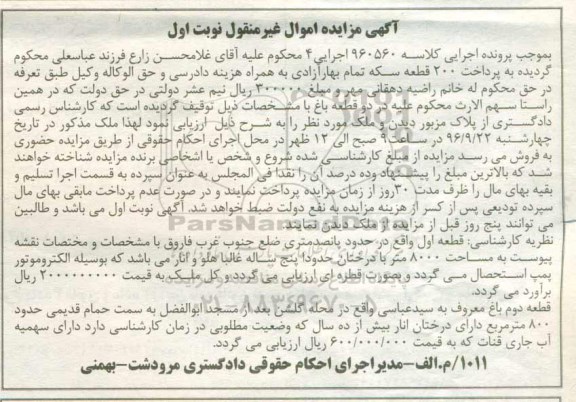 آگهی مزایده اموال غیرمنقول نوبت اول
بموجب پرونده اجرایی کلاسه ۹۶۰۵۶۰ اجرایی۴ محکوم علیه آقای غلامحسن زارع فرزند عباسعلی محکوم
گردیده به پرداخت ۲۰۰ قطعه سکه تمام بهارآزادی به همراه هزینه دادرسی و حق الوکاله وکیل طبق تعرفه
در حق محکوم له خانم راضیه دهقانی مهر و مبلغ ۳۰۰۰۰۰ ریال نیم عشر دولتی در حق دولت که در همین
راستا سهم الارث محکوم علیه در دو قطعه باغ با مشخصات ذیل توقیف گردیده است که کارشناس رسمی
دادگستری از پلاک مزبور دیدن و ملک مورد نظر را به شرح ذیل ارزیابی نمود لهذا ملک مذکور در تاریخ
چهارشنبه ۹۶/۹/۲۲ در ساعت۹ صبح الی ۱۲ ظهر در محل اجرای احکام حقوقی از طریق مزایده حضوری
به فروش می رسد مزایده از مبلغ کارشناسی شده شروع و شخص یا اشخاصی برنده مزایده شناخته خواهند
شد که بالاترین مبلغ را پیشنهاد وده درصد آن را نقدا فی المجلس به عنوان سپرده به قسمت اجرا تسلیم و
بقیه بهای مال را ظرف مدت ۳۰روز از زمان مزایده پرداخت نمایند و در صورت عدم پرداخت مابقی بهای مال
سپرده تودیعی پس از کسر از هزینه مزایده به نفع دولت ضبط خواهد شد. آگهی نوبت اول می باشد و طالبین
می توانند پنج روز قبل از مزایده از ملک دیدن نمایند
نظریه کارشناسی: قطعه اول واقع در حدود پانصدمتری ضلع جنوب غرب فاروق با مشخصات و مختصات نقشه
پیوست به مساحت ۸۰۰۰ متر با درختان حدودا پنج ساله غالبا هلو و انار می باشد که بوسیله الکتروموتور
پمپ استحصال می گردد و بصورت قطره ای ارزیابی می گردد و کل ملک به قیمت ۲۰۰۰۰۰۰۰۰۰ ریال
برآورد می گردد.
قطعه دوم باغ معروف به سیدعباسی واقع در محله گلشن بعد از مسجد ابوالفضل به سمت حمام قدیمی حدود
۸۰۰ مترمربع دارای درختان انار بیش از ده سال که وضعیت مطلوبی در زمان کارشناسی دارد دارای سهمیه
آب جاری قنات که به قیمت ۶۰۰/۰۰۰/۰۰۰ ریال ارزیابی می گردد.
۱۰۱۱/م.الف-مدیراجرای احکام حقوقی دادگستری مرودشت-بهمنی
ParsNamadData
۰۲۱-۸۸۳۴۹۶۷۰-۵